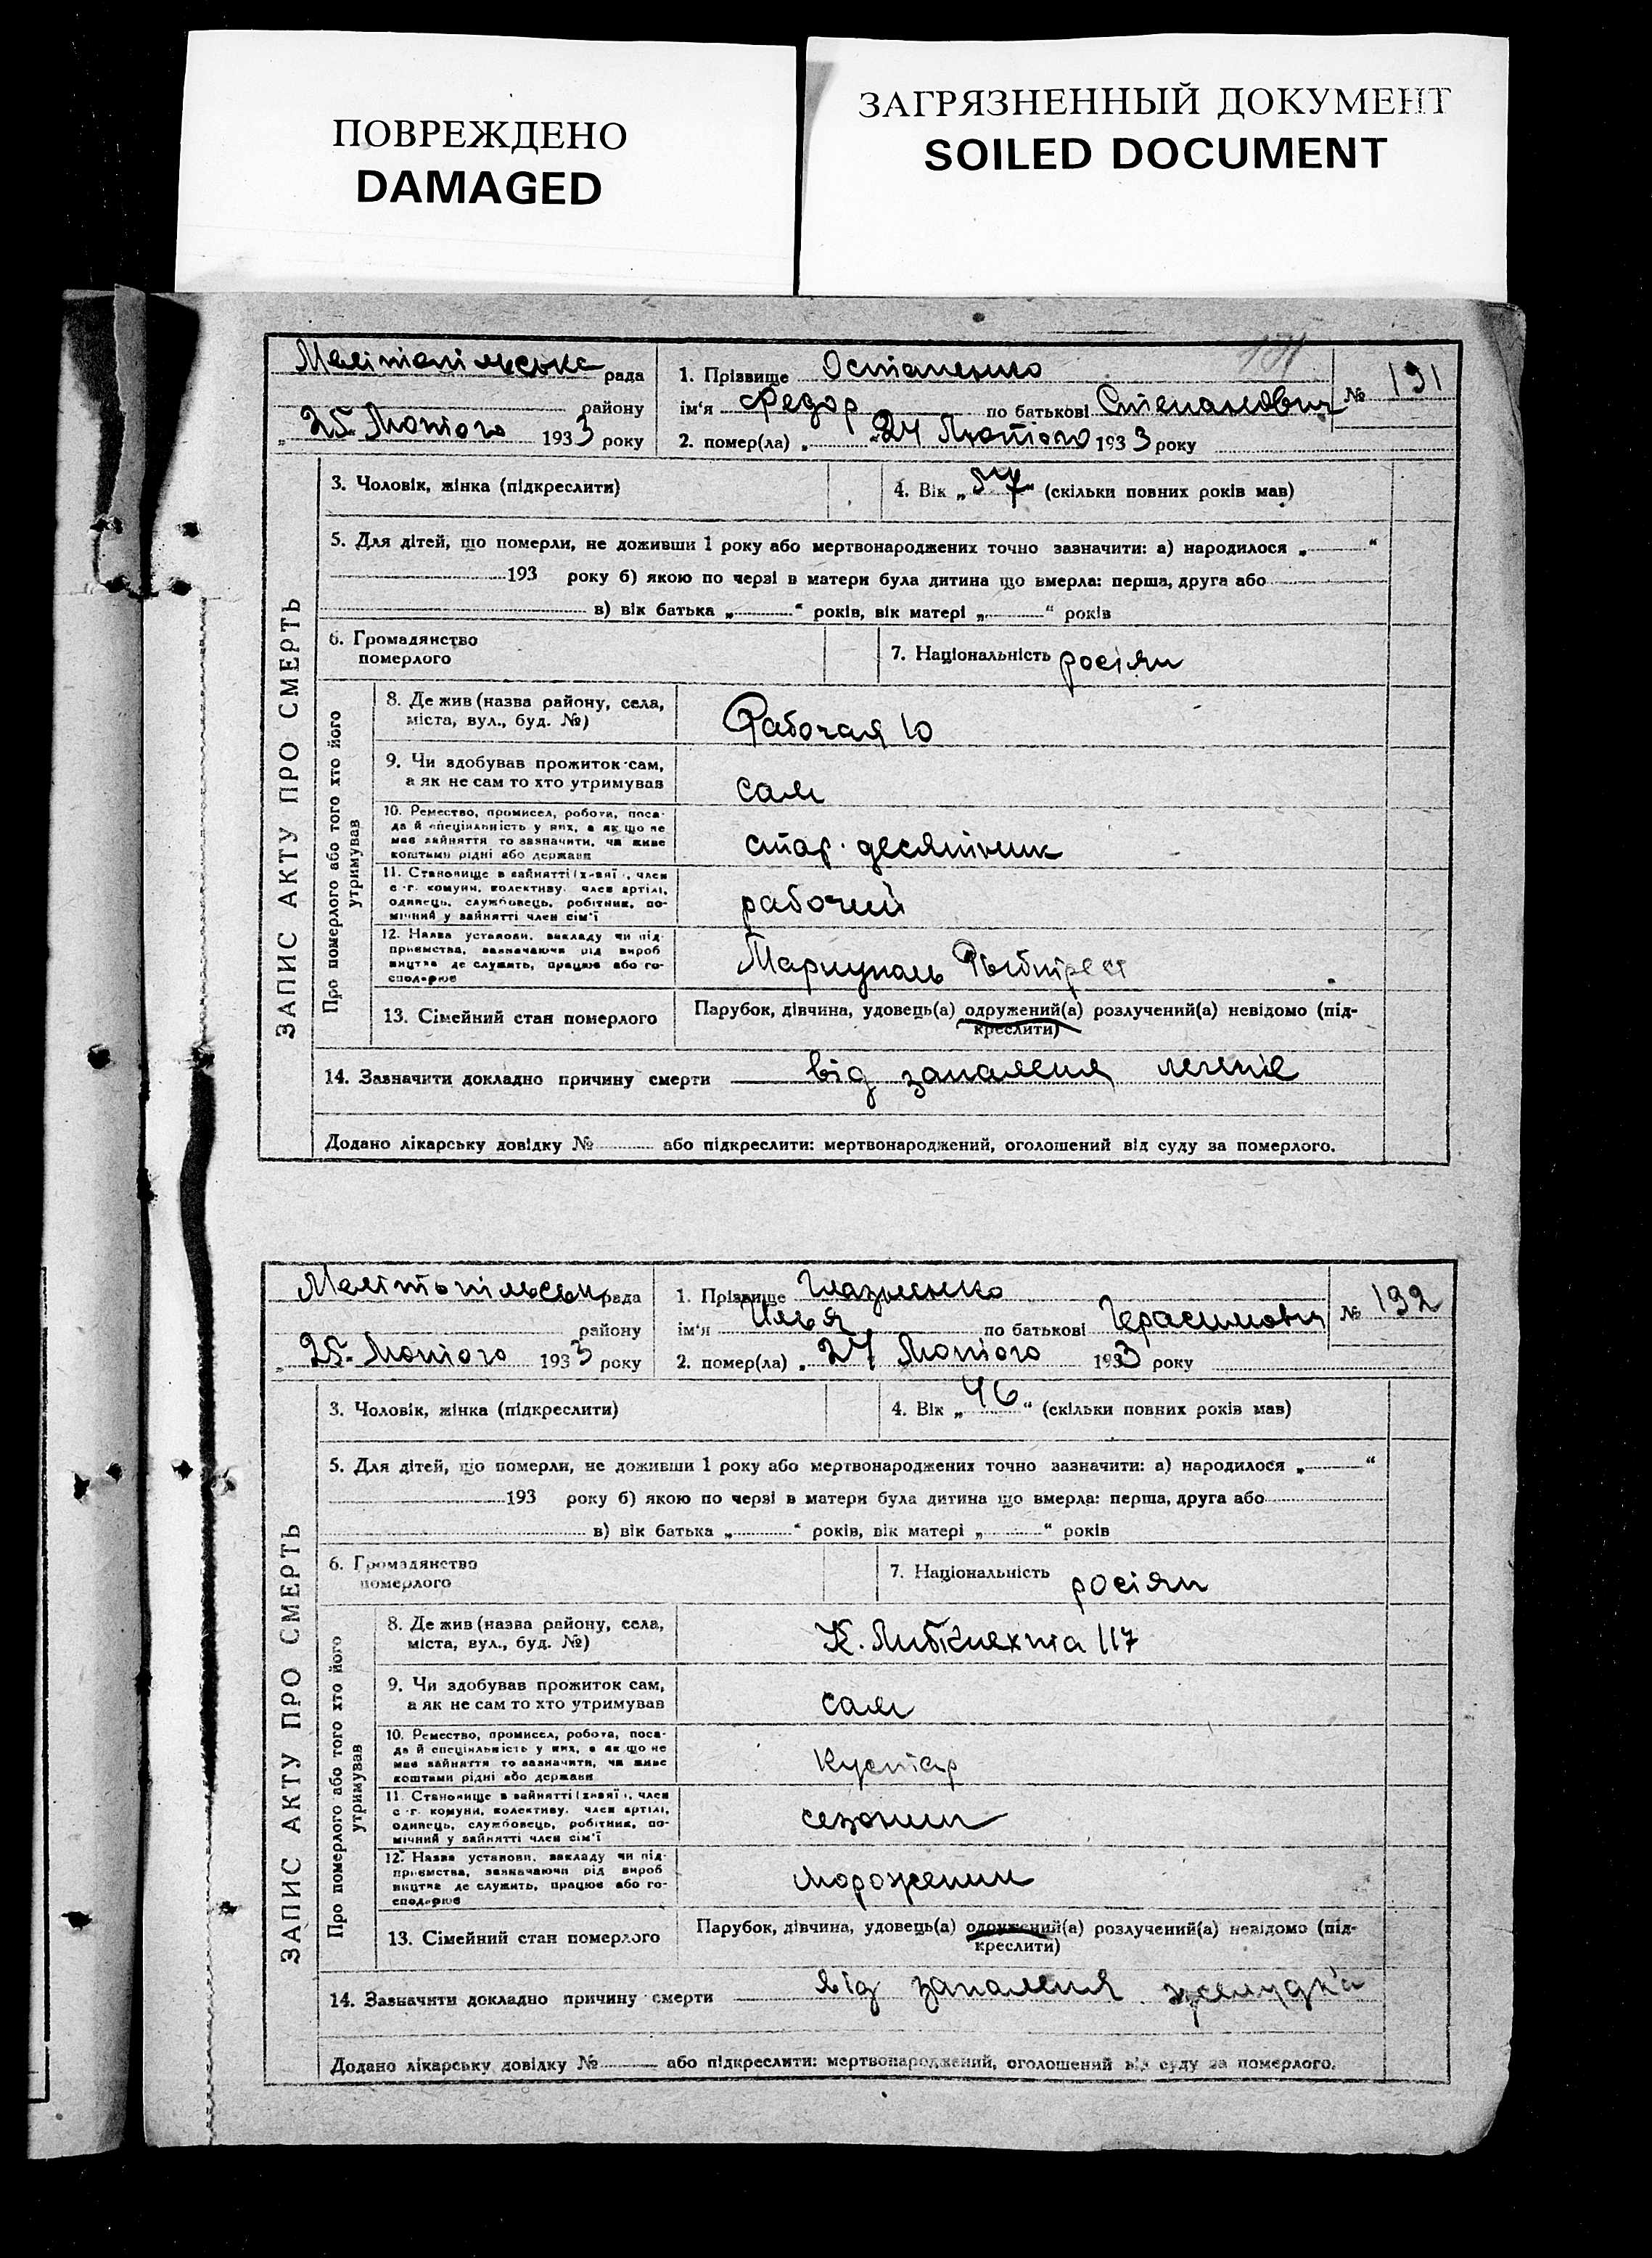 ПОВРЕЖДЕНО
DAMAGED
ЗАГРЯЗНЕННЫЙ ДОКУМЕНТ
SOILED DOCUMENT
ЗАПИС АКТУ ПРО СМЕРТЬ
Мелітопільська рада
району
„ 25 Лютого 1933 року
1. Прізвище Остапенко
ім'я Федор по батькові Степанович
2. помер(ла) „ 24 Лютого 1933 року
191
№ 191
3. Чоловік, жінка (підкреслити)
4. Вік „57“ (скільки повних років мав)
5. Для дітей, що померли, не доживши 1 року або мертвонароджених точно зазначити: а) народилося „ “
193 року б) якою по черзі в матери була дитина що вмерла: перша, друга або
в) вік батька „ “ років, вік матері „ “ років
6. Громадянство
померлого
7. Національність росіян
Про померлого або того хто його
утримував
8. Де жив (назва району, села,
міста, вул., буд. №)
Рабочая 10
9. Чи здобував прожиток сам,
а як не сам то хто утримував
сам
10. Ремество, промисел, робота, поса-
да й спеціяльність у них, а як що не
мав зайняття то зазначити, чи живе
коштами рідні або держави
стар. десятник
11. Становище в зайнятті (хазяї, член
с.-г. комуни, колективу, член артілі,
одинець, службовець, робітник, по-
мічний у зайнятті член сім'ї
рабочий
12. Назва установи, закладу чи під-
приємства, зазначаючи рід вироб
ництва де служить, працює або го-
сподарює
Мариуполь Рыбтрест
13. Сімейний стан померлого
Парубок, дівчина, удовець(а) одружений(а) розлучений(а) невідомо (під-
креслити)
14. Зазначити докладно причину смерти від запаления легенів
Додано лікарську довідку № або підкреслити: мертвонароджений, оголошений від суду за померлого.
ЗАПИС АКТУ ПРО СМЕРТЬ
рада
району
„ 25 Лютого 1933 року
1. Прізвище
ім'я Илья по батькові Герасимович
2. помер(ла) „ 24 Лютого 1933 року
№ 192
3. Чоловік, жінка (підкреслити)
4. Вік „46“ (скільки повних років мав)
5. Для дітей, що померли, не доживши 1 року або мертвонароджених точно зазначити: а) народилося „ “
193 року б) якою по черзі в матери була дитина що вмерла: перша, друга або
в) вік батька „ “ років, вік матері „ “ років
6. Громадянство
померлого
7. Національність росіян
Про померлого або того хто його
утримував
8. Де жив (назва району, села,
міста, вул., буд. №)
К. Либкнехта 117
9. Чи здобував прожиток сам,
а як не сам то хто утримував
сам
10. Ремество, промисел, робота, поса-
да й спеціяльність у них, а як що не
мав зайняття то зазначити, чи живе
коштами рідні або держави
Кустар
11. Становище в зайнятті (хазяї, член
с.-г. комуни, колективу, член артілі,
одинець, службовець, робітник, по-
мічний у зайнятті член сім'ї
12. Назва установи, закладу чи під-
приємства, зазначаючи рід вироб
ництва де служить, працює або го-
сподарює
13. Сімейний стан померлого
Парубок, дівчина, удовець(а) одружений(а) розлучений(а) невідомо (під-
креслити)
14. Зазначити докладно причину смерти від запаления желудка
Додано лікарську довідку № або підкреслити: мертвонароджений, оголошений від суду за померлого.